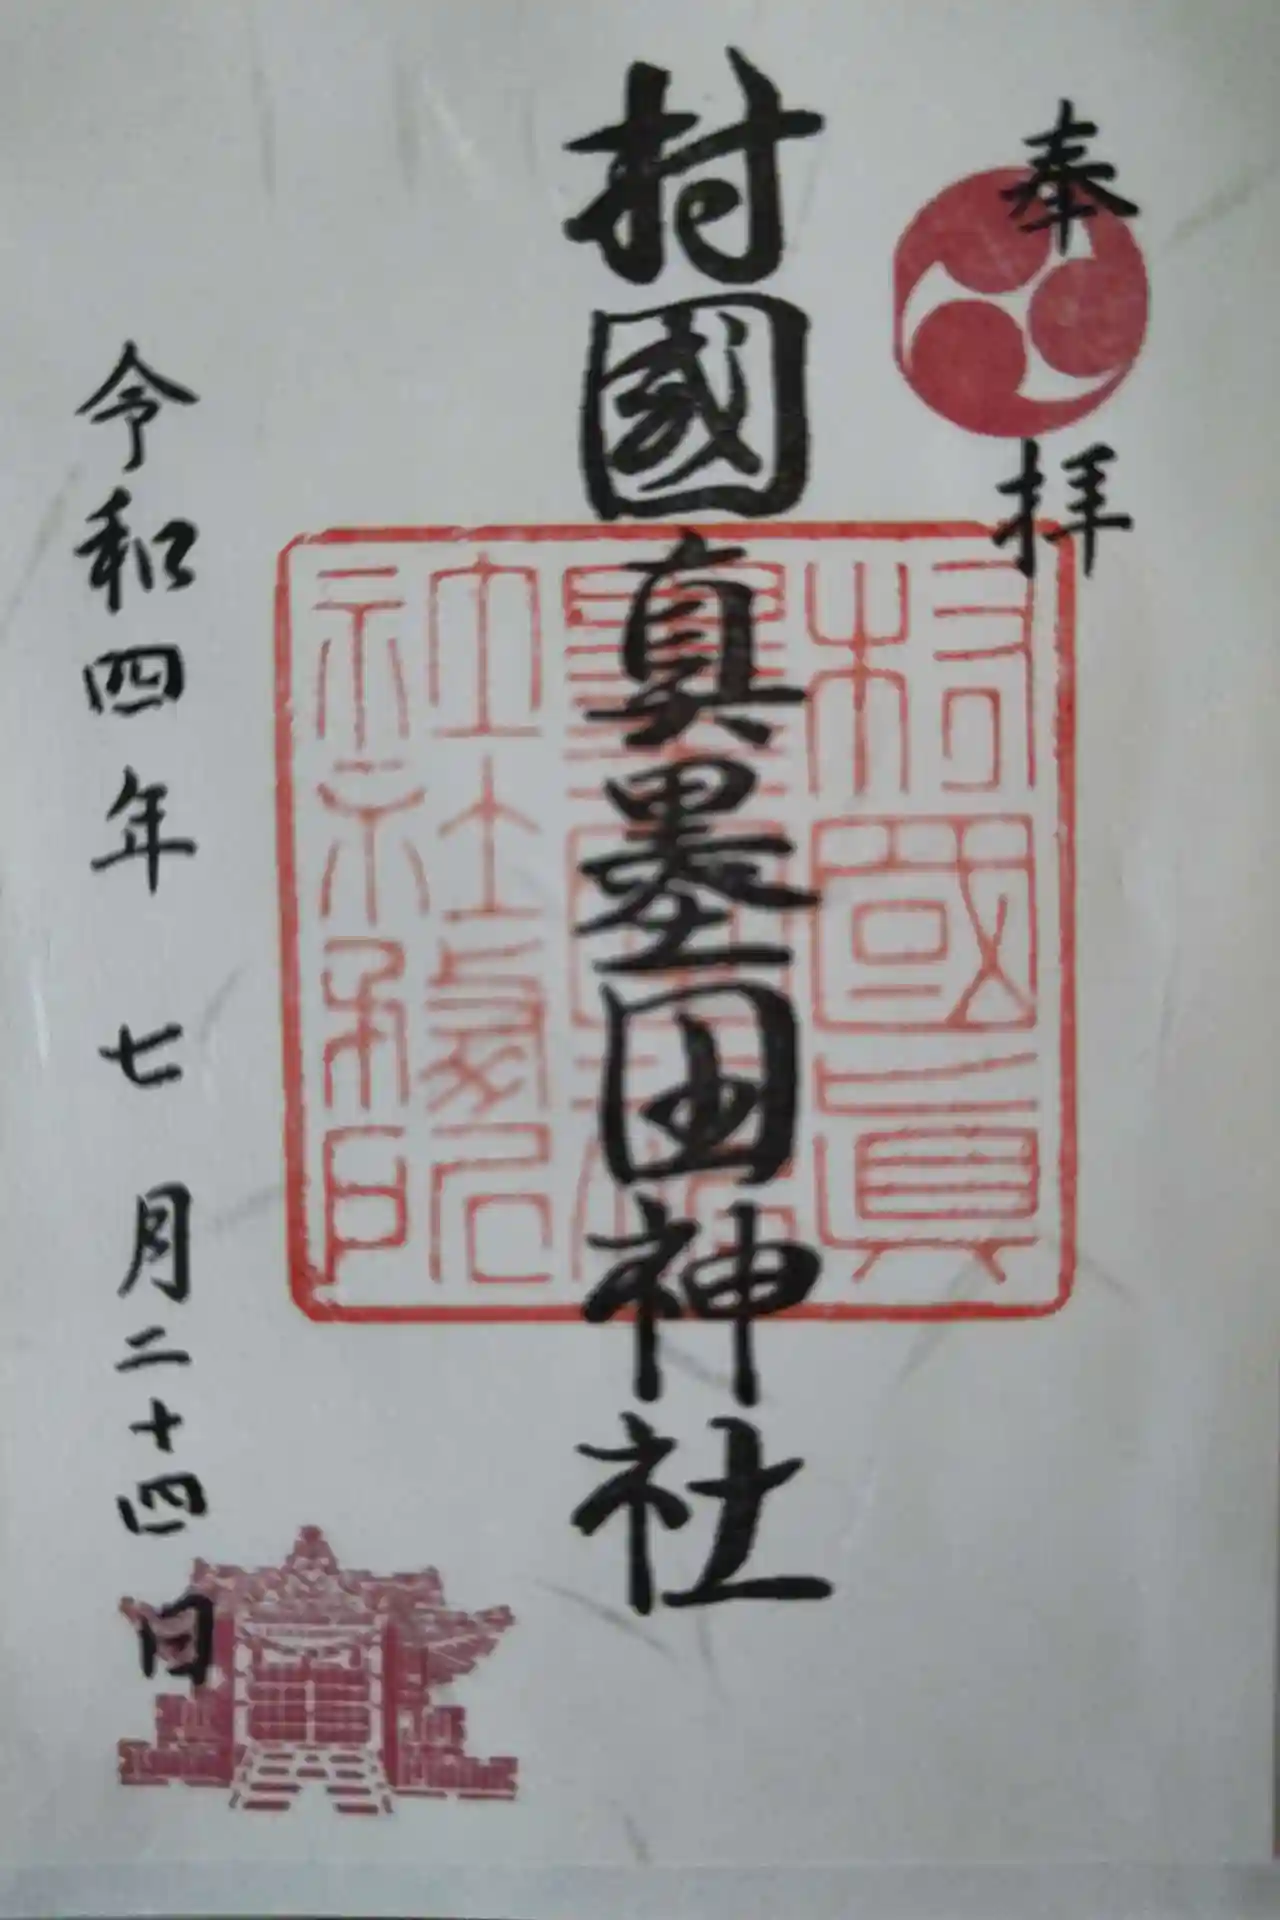 奉拝
村國真墨田神社
令和四年 七月二十四日
村國真
墨田神
社社務所